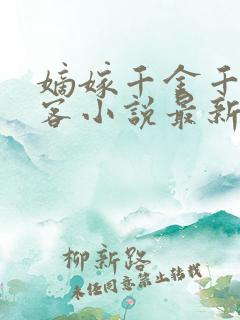 嫡嫁千金千
客小说最新
柳新路
未经同意禁止转载